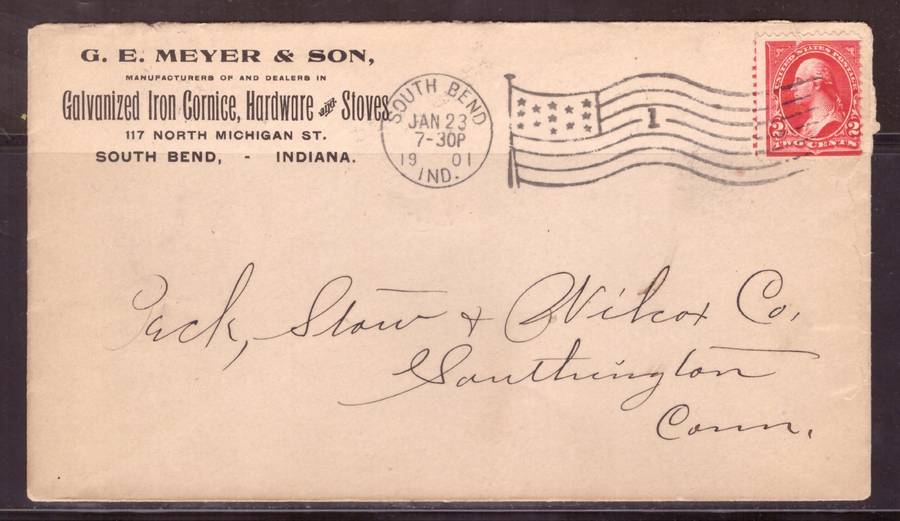 G. E. MEYER & SON,
MANUFACTURERS OF AND DEALERS IN
Galvanized Iron Cornice, Hardware and Stoves
117 NORTH MICHIGAN ST.
SOUTH BEND, - INDIANA.
SOUTH BEND
JAN 23
7-30P
19 01
IND.
1
UNITED STATES POSTAGE
2 2
TWO CENTS
Peck, Stow & Wilcox Co.
Southington
Conn.